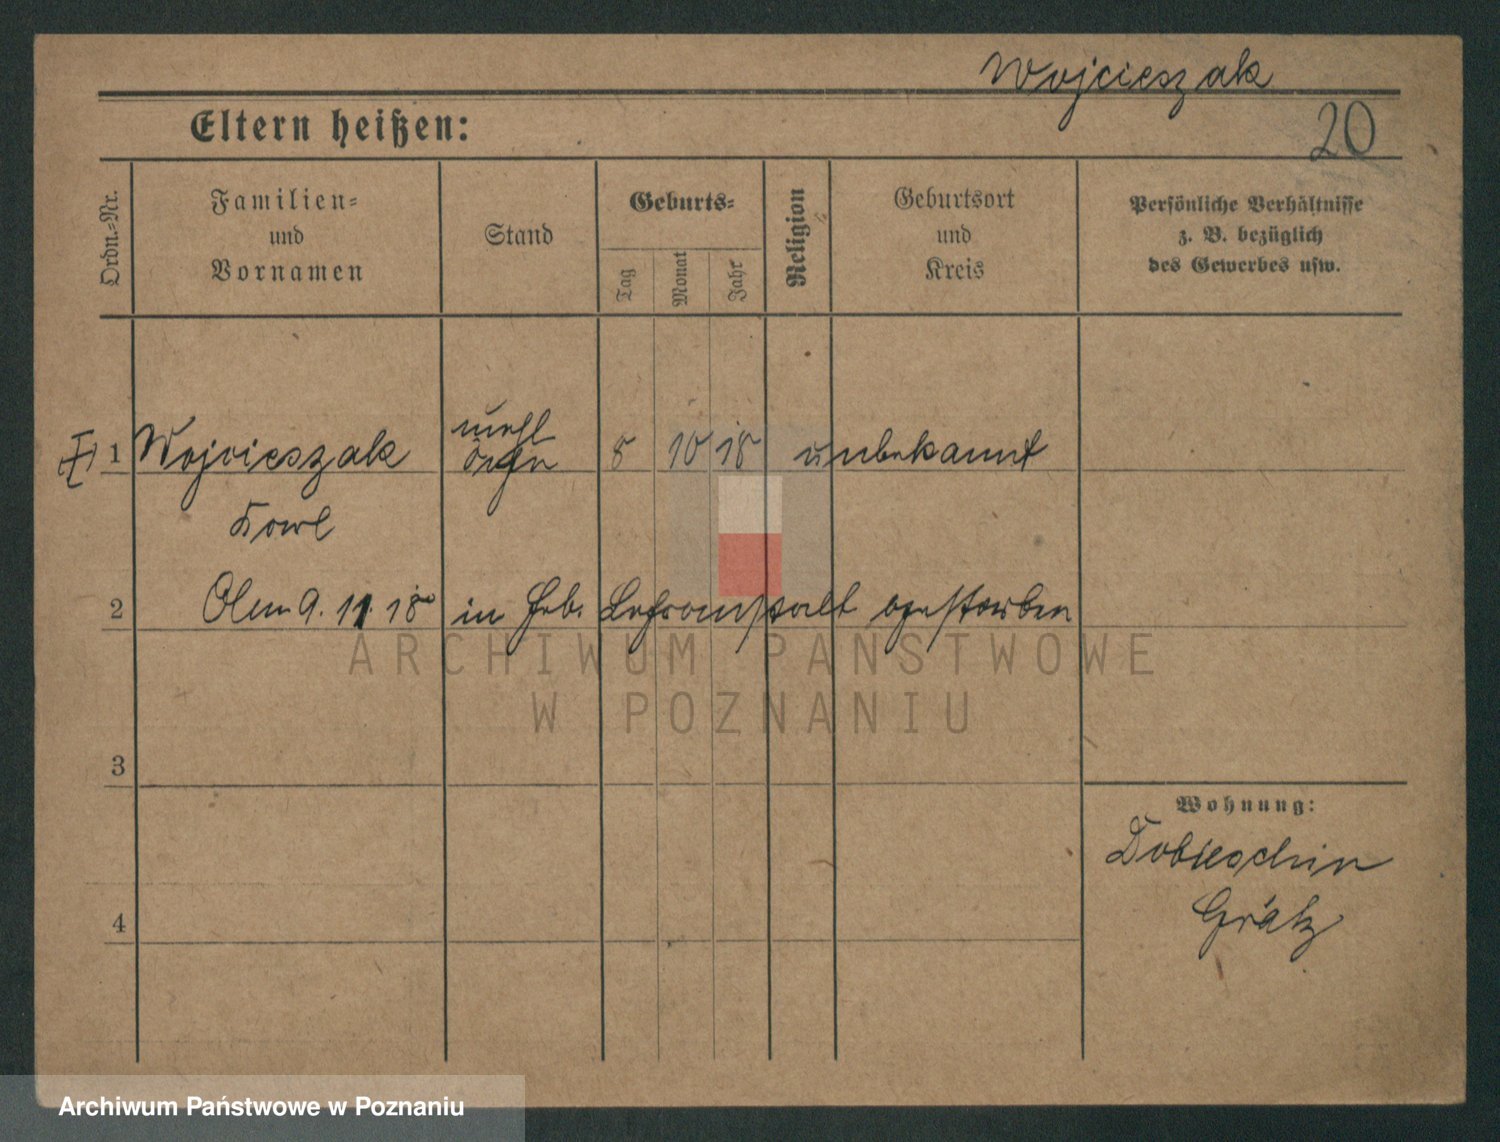 Wojcieszak
20
Eltern heißen:
Ordn.-Nr.
Familien-
und
Vornamen
Stand
Geburts-
Tag
Monat
Jahr
Religion
Geburtsort
und
Kreis
Persönliche Verhältnisse
z. B. bezüglich
des Gewerbes usw.
1 Wojcieszak 8 10 18 unbekannt
Karl
2 9. 11. 18 in Geb. gestorben
3
4
Wohnung:
Dobieschin
Grätz
ARCHIWUM PAŃSTWOWE
W POZNANIU
Archiwum Państwowe w Poznaniu